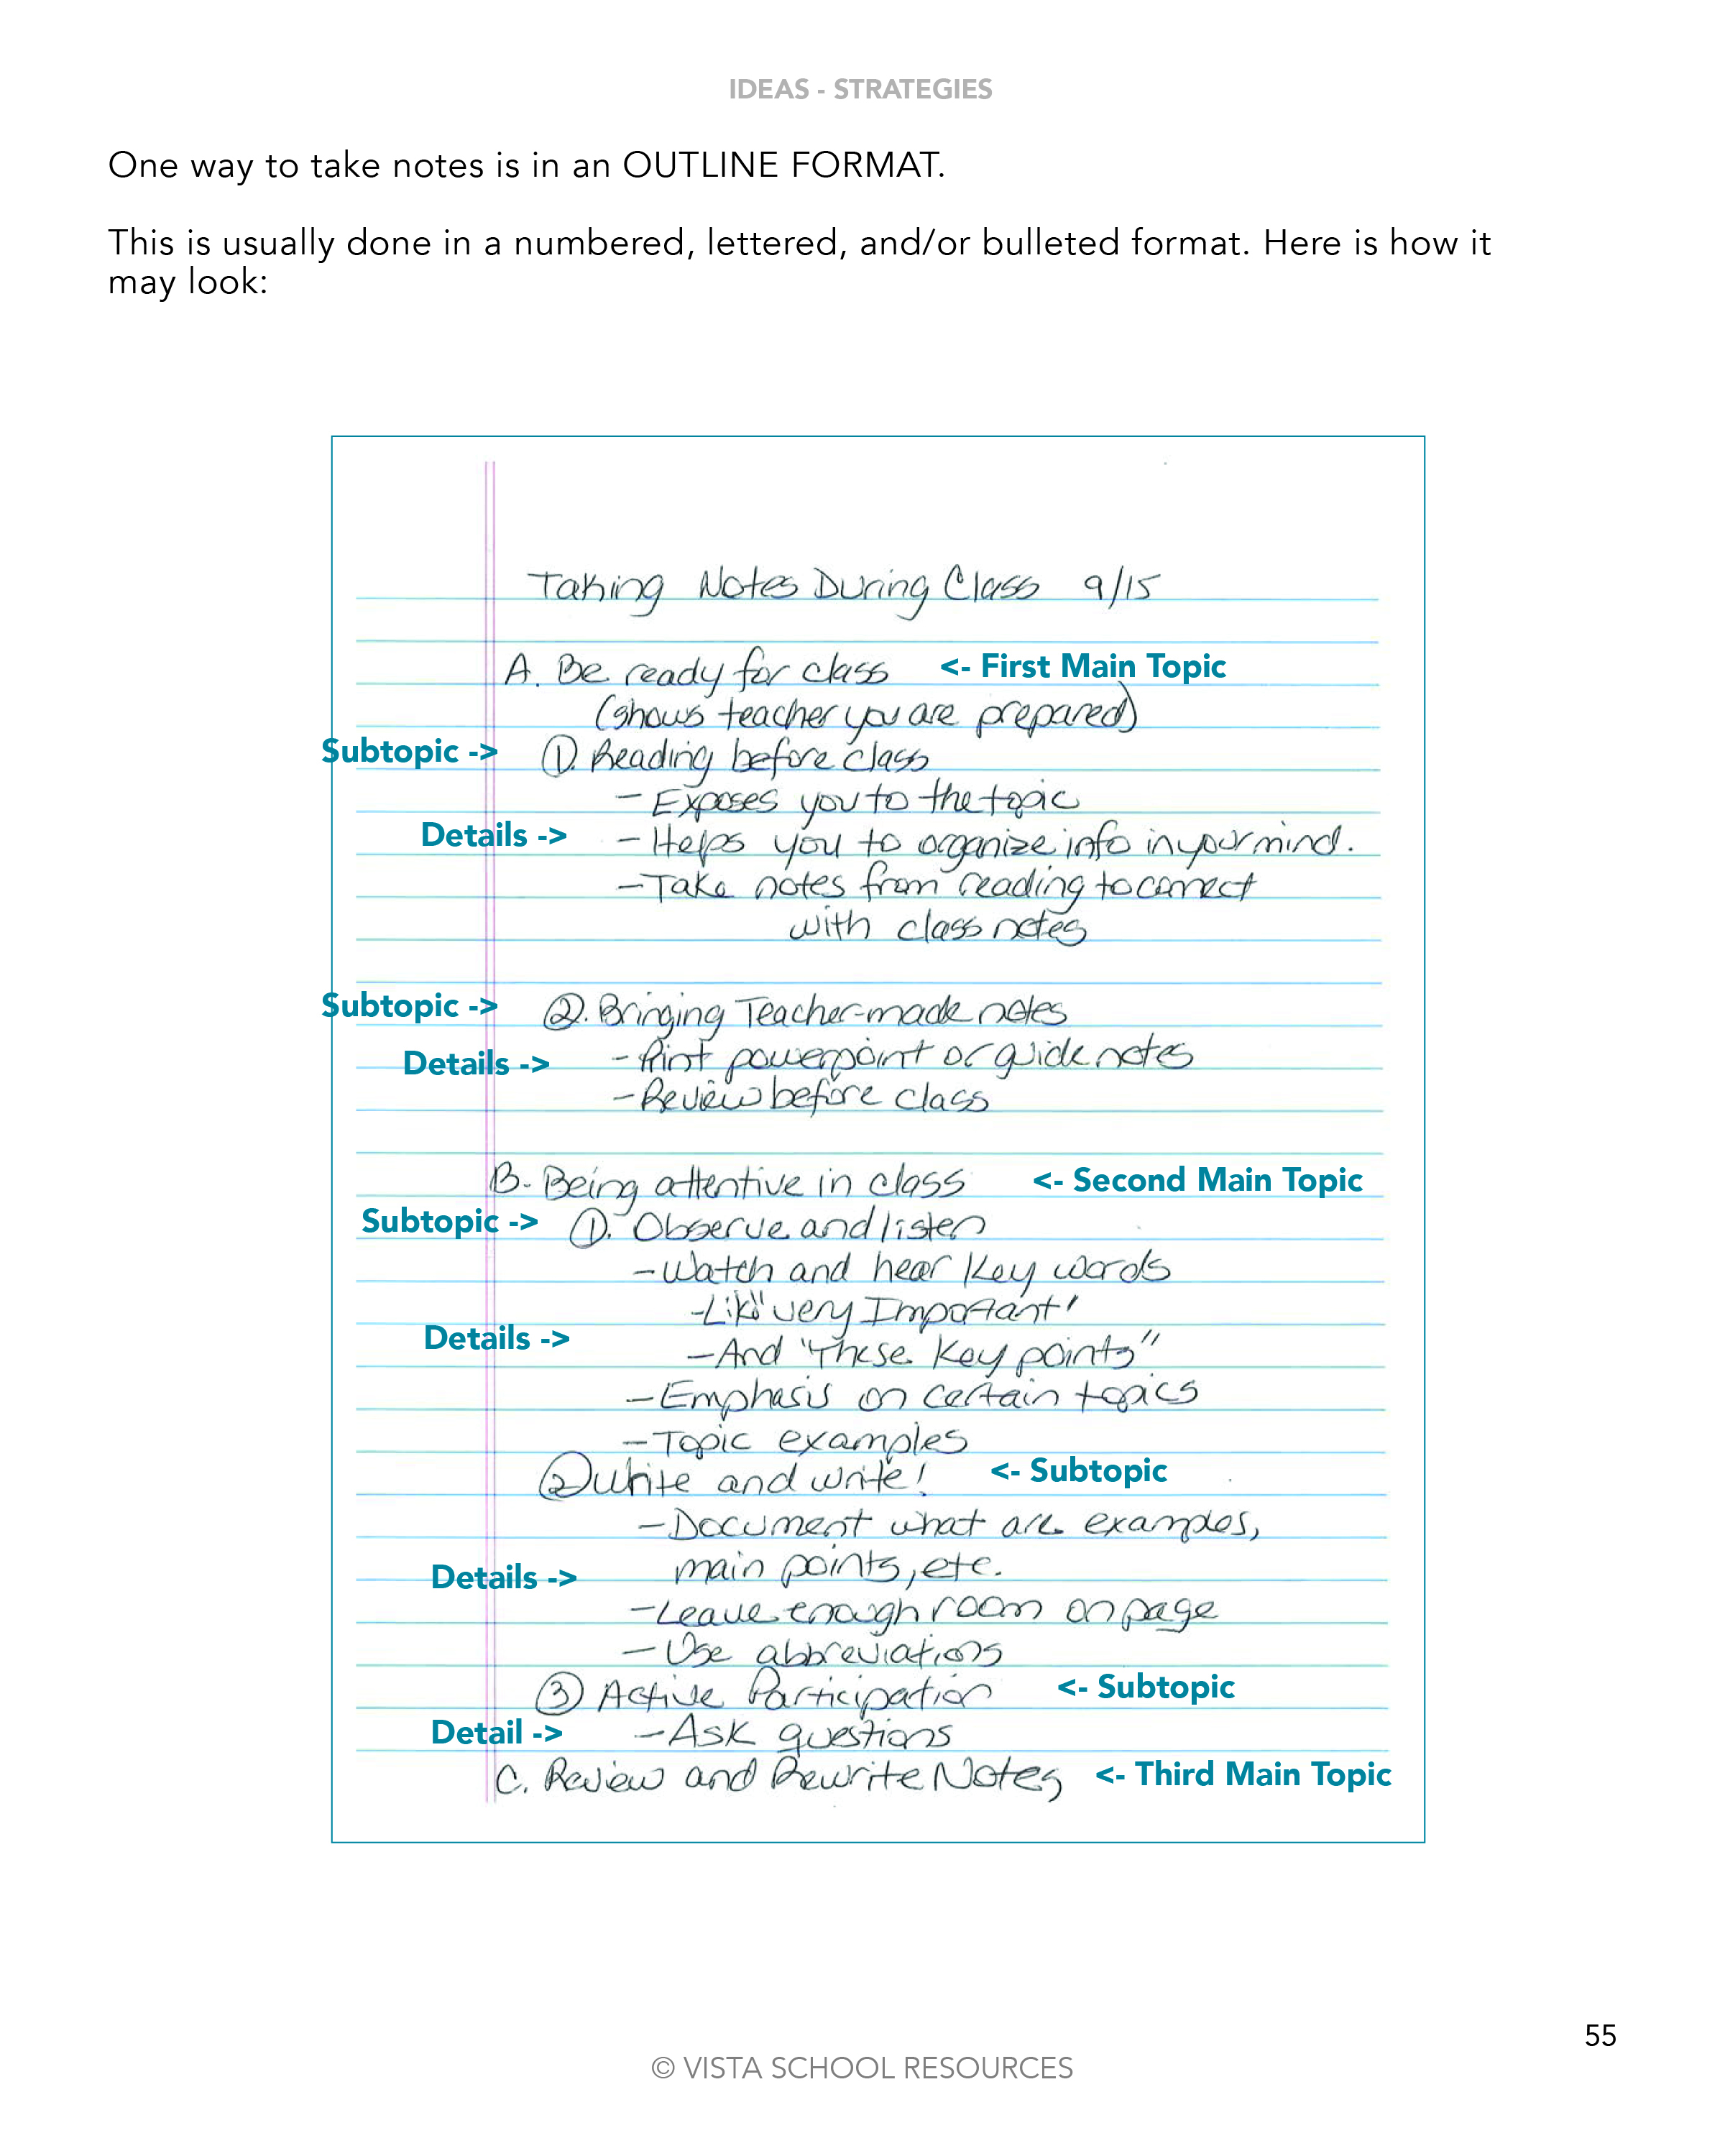 IDEAS - STRATEGIES
One way to take notes is in an OUTLINE FORMAT.
This is usually done in a numbered, lettered, and/or bulleted format. Here is how it
may look:
Taking Notes During Class 9/15
A. Be ready for class <- First Main Topic
(shows teacher you are prepared)
Subtopic -> 1. Reading before class
- Exposes you to the topic
Details -> - Helps you to organize info in your mind.
- Take notes from reading to connect
with class notes
Subtopic -> 2. Bringing Teacher-made notes
Details -> - Print powerpoint or guide notes
- Review before class
B. Being attentive in class <- Second Main Topic
Subtopic -> 1. Observe and listen
- Watch and hear key words
- Like "very Important"
Details ->
- And "These key points"
- Emphasis on certain topics
- Topic examples
2 Write and write! <- Subtopic
- Document what are examples,
Details -> main points, etc.
- Leave enough room on page
- Use abbreviations
3 Active Participation <- Subtopic
Detail -> - Ask questions
C. Review and Rewrite Notes <- Third Main Topic
55
© VISTA SCHOOL RESOURCES